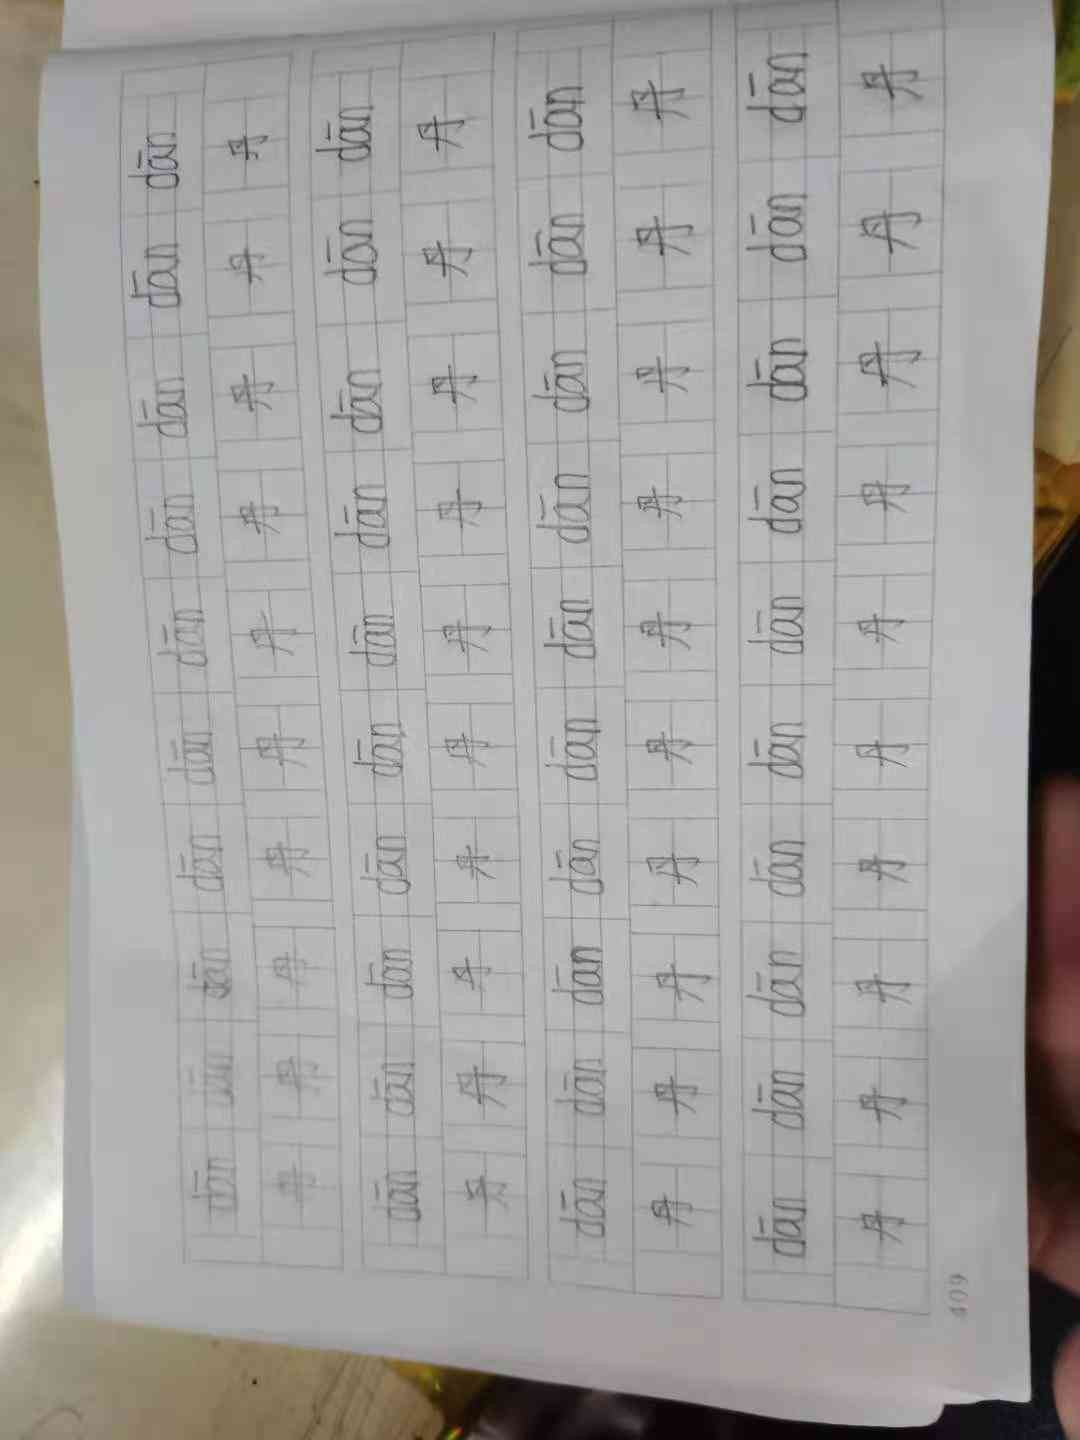 dān dān dān dān dān dān dān dān dān dān
丹 丹 丹 丹 丹 丹 丹 丹 丹 丹
dān dān dān dān dān dān dān dān dān dān
丹 丹 丹 丹 丹 丹 丹 丹 丹 丹
dān dān dān dān dān dān dān dān dān dān
丹 丹 丹 丹 丹 丹 丹 丹 丹 丹
dān dān dān dān dān dān dān dān dān dān
丹 丹 丹 丹 丹 丹 丹 丹 丹 丹
409